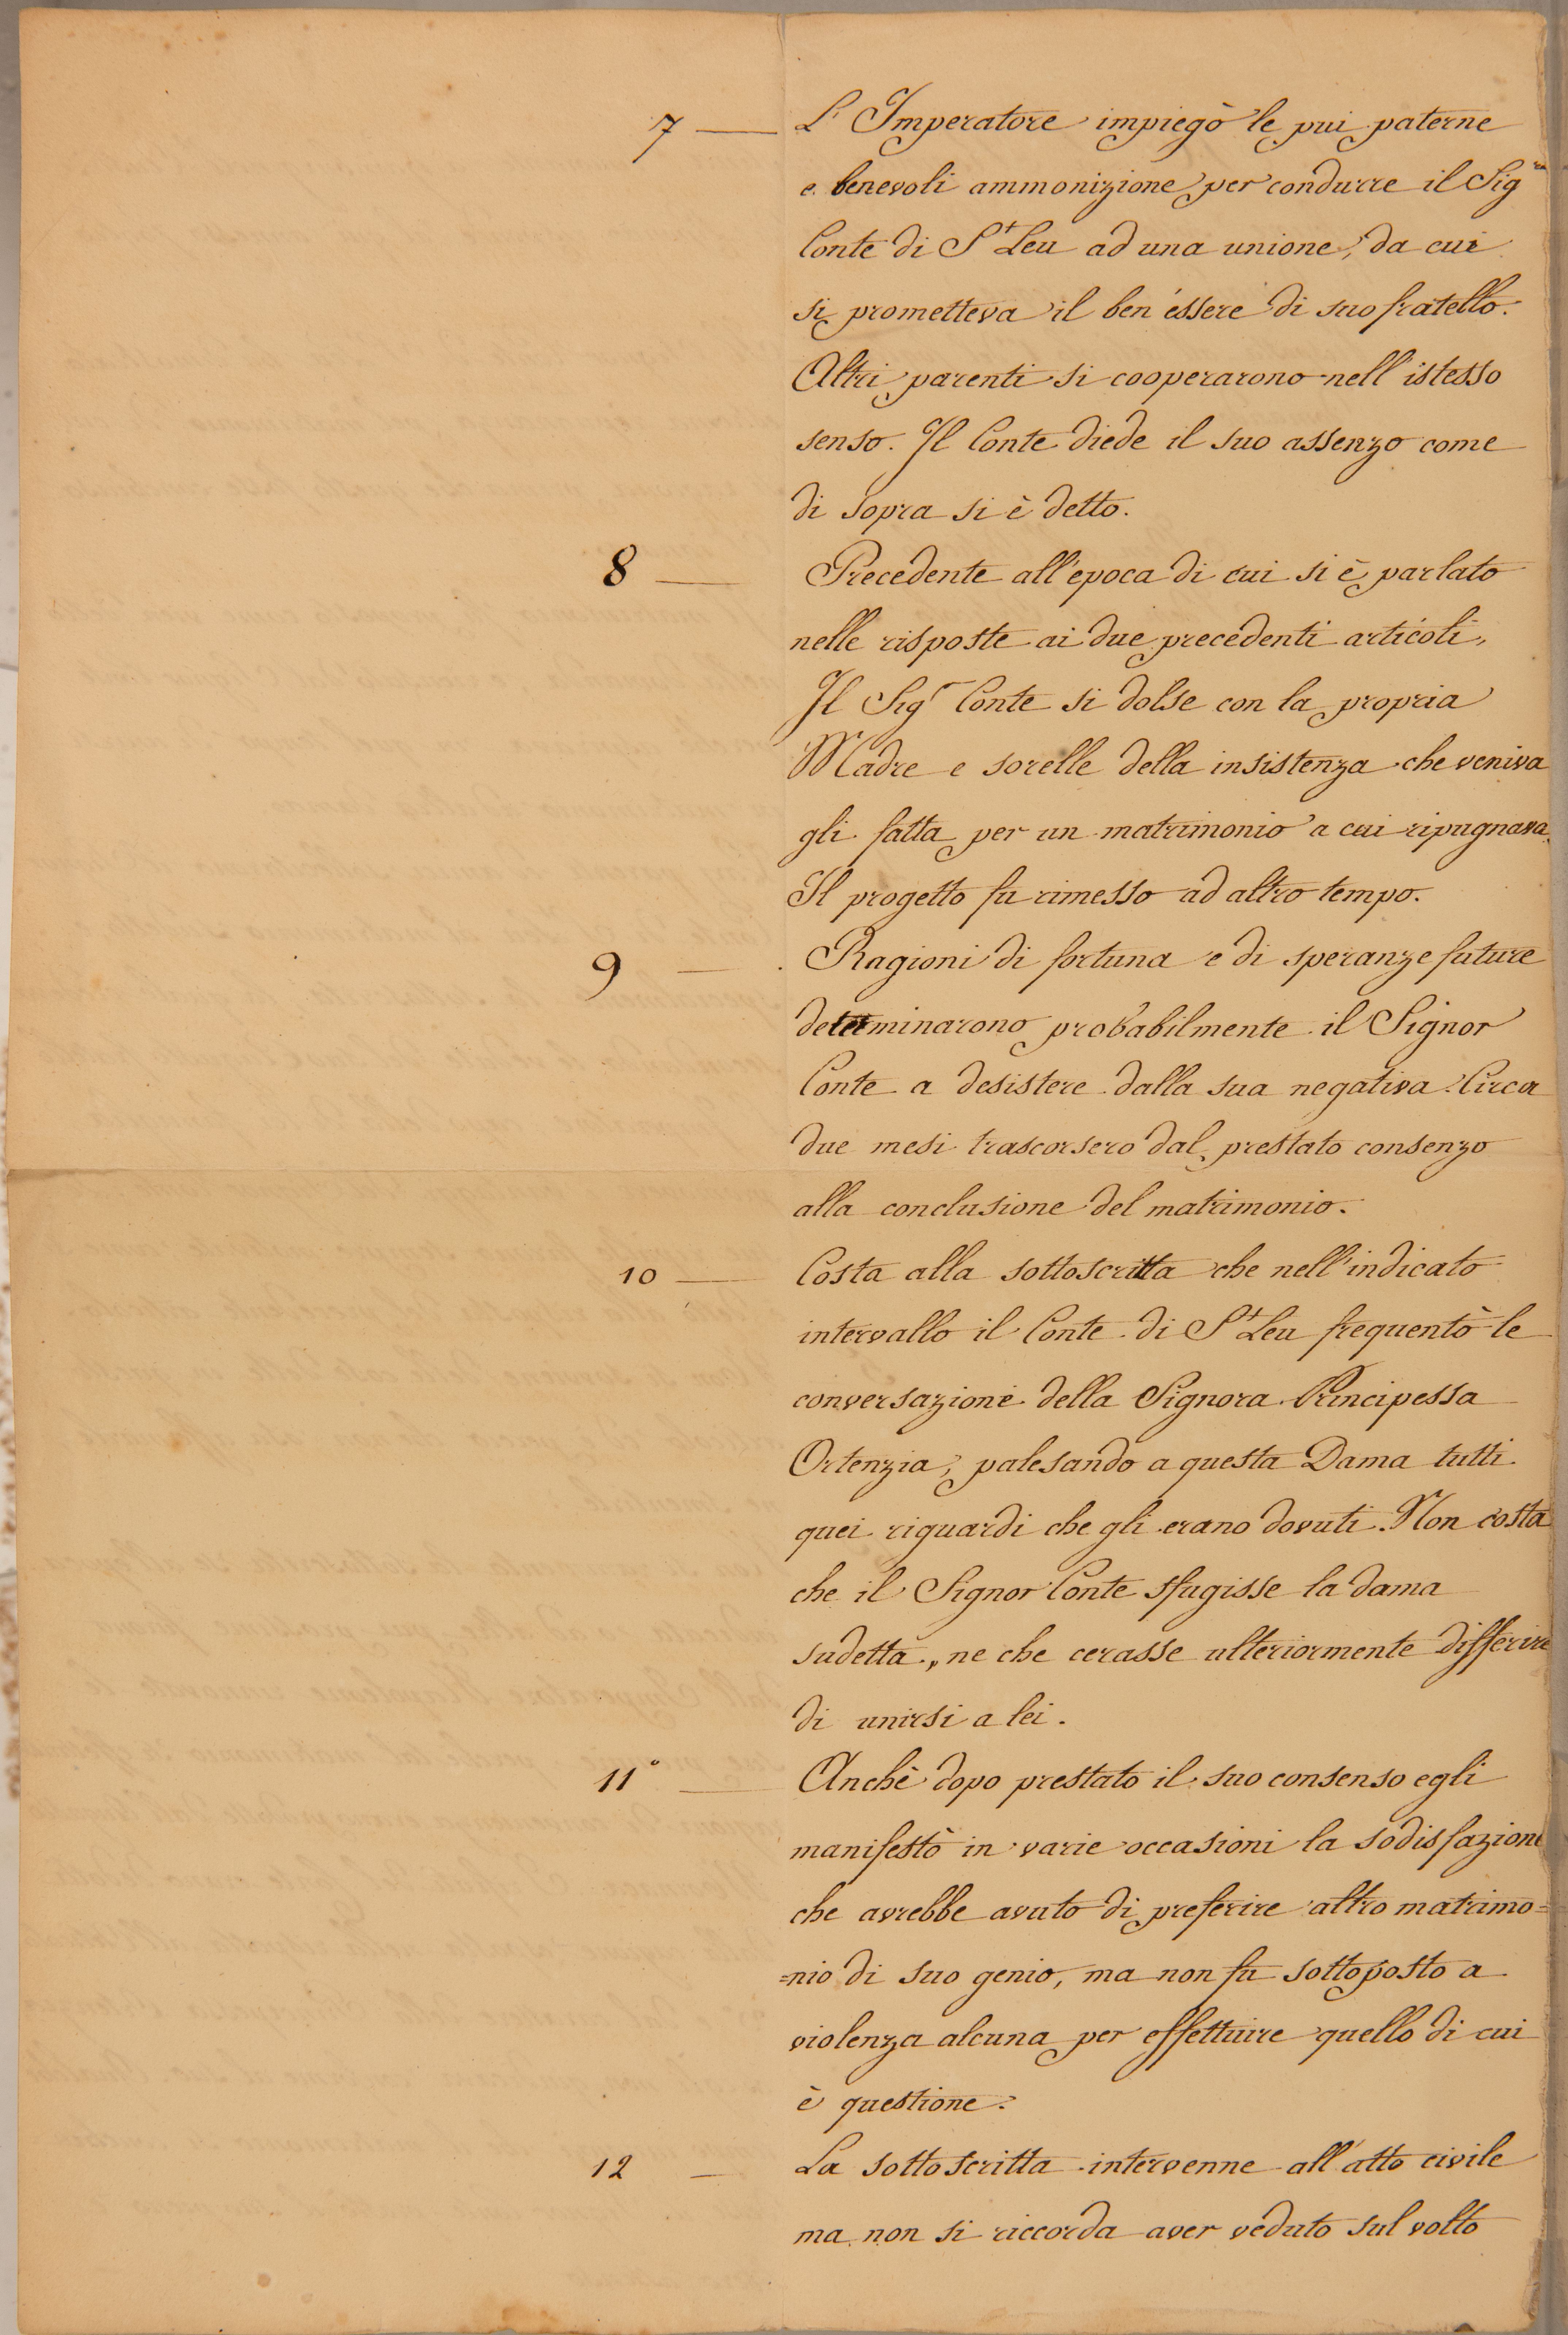 7 — L'Imperatore impiegò le pui paterne
e benevoli ammonizione per condurre il Sig.re
Conte di St Leu ad una unione, da cui
si prometteva il ben'essere di suo fratello.
Altri parenti si cooperarono nell'istesso
senso. Il Conte diede il suo assenzo come
di sopra si è detto.
8 — Precedente all'epoca di cui si è parlato
nelle risposte ai due precedenti articoli,
Il Sigr Conte si dolse con la propria
Madre e sorelle della insistenza che veniva
gli fatta per un matrimonio a cui ripugnava.
Il progetto fu rimesso ad altro tempo.
9 — Ragioni di fortuna e di speranze future
determinarono probabilmente il Signor
Conte a desistere dalla sua negativa. Circa
due mesi trascorsero dal prestato consenzo
alla conclusione del matrimonio.
10 — Costa alla sottoscritta che nell'indicato
intervallo il Conte di St Leu frequentò le
conversazioni della Signora Principessa
Ortenzia, palesando a questa Dama tutti
quei riguardi che gli erano dovuti. Non costa
che il Signor Conte sfugisse la dama
sudetta, ne che cerasse ulteriormente differire
di unirsi a lei.
11° — Anchè dopo prestato il suo consenso egli
manifestò in varie occasioni la sodisfazione
che avrebbe avuto di preferire altro matrimo=
=nio di suo genio, ma non fu sottoposto a
violenza alcuna per effettuire quello di cui
è questione.
12 — La sottoscritta intervenne all'atto civile
ma non si riccorda aver veduto sul volto